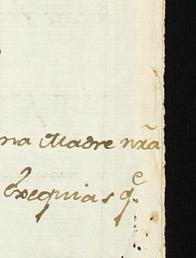 na Madre nrã
Exequias q.e